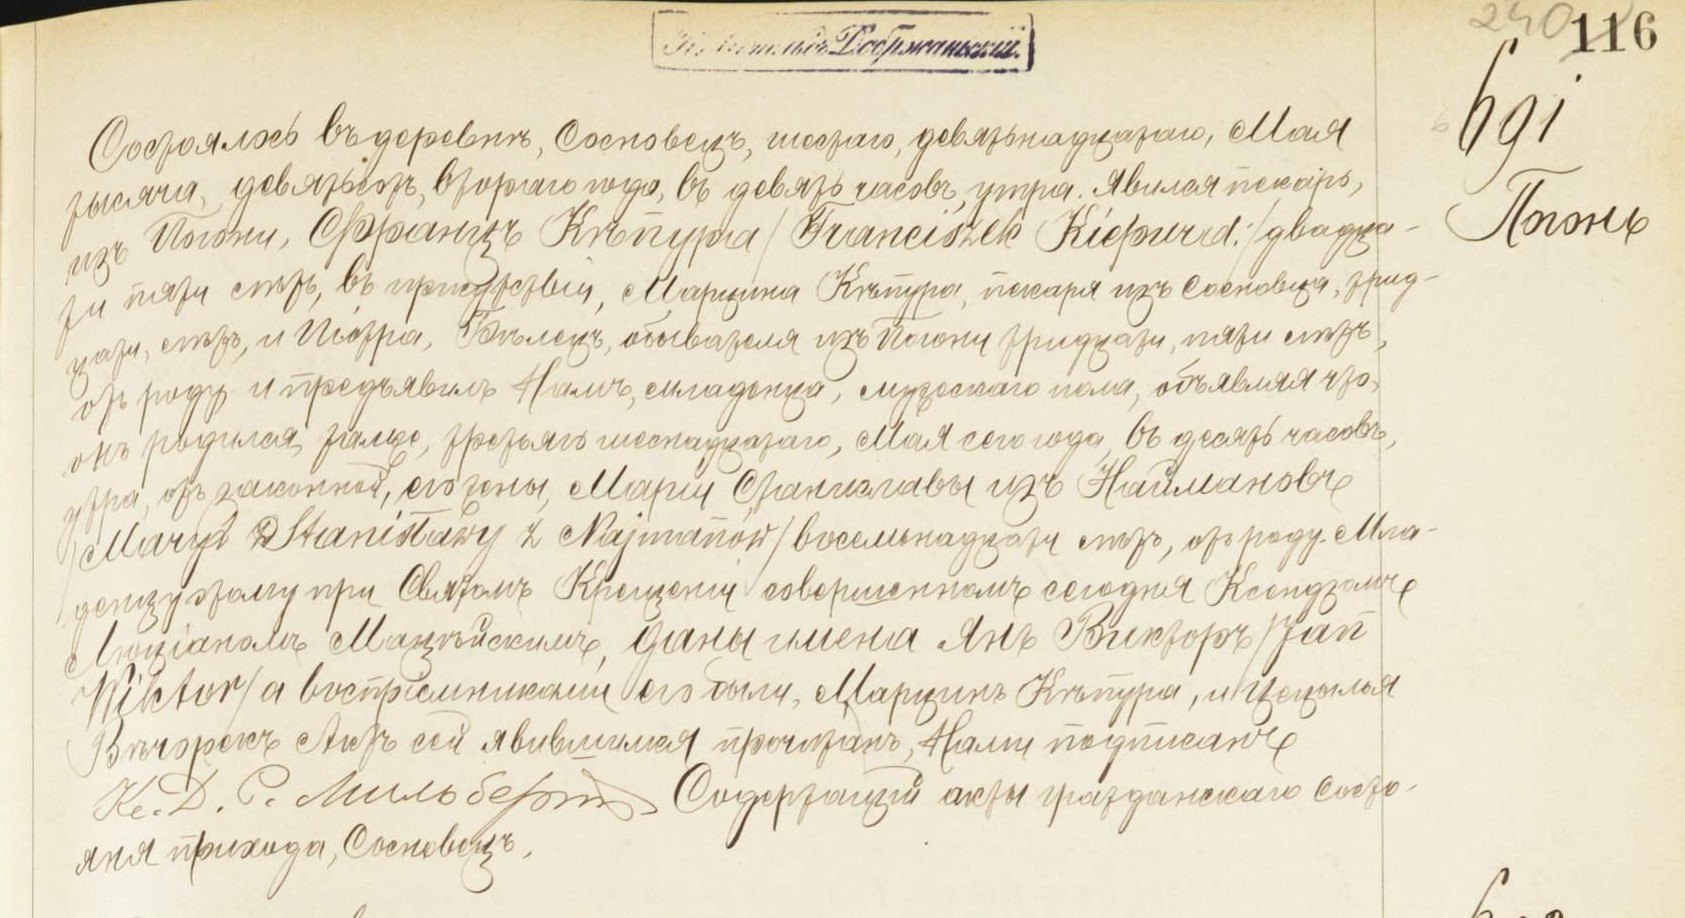 240 116
Добржаньскій.
691
Погонь
Состоялось въ деревнѣ, Сосновецъ, шестаго, девятьнадцатаго, Мая
тысяча, девятьсотъ, втораго года, въ девять часовъ, утра. Явился пекарь,
изъ Погони, Францъ Кѣпура /Franciszek Kiepura:/ двадца-
ти пяти лѣтъ, въ присутствіи, Марцина Кѣпура, пекаря изъ Сосновца, трид-
цати, лѣтъ, и Піотра, Бѣлецъ, обывателя изъ Погони тридцати, пяти лѣтъ,
отъ роду и предъявилъ Намъ, младенца, мужескаго пола, объявляя что,
онъ родился, третьяго шеснадцатаго, Мая сего года, въ десять часовъ,
утра, отъ законной, его жены, Маріи Станиславы изъ Наймановъ
/Maryi Stanisławy z Najmanów/ восемьнадцати лѣтъ, отъ роду. Мла-
денцу этому при Святомъ Крещеніи совершенномъ сегодня Ксендзомъ
Люціаномъ, даны имена Янъ Викторъ /Jan
Wiktor/ а воспріемниками его были, Марцинъ Кѣпура, и Цецылія
Вѣчорекъ Актъ сей явившимся прочитанъ, Нами подписанъ
Кс. Д. Р. Мильбертъ Содержащій акты гражданскаго состо-
янія прихода, Сосновецъ.